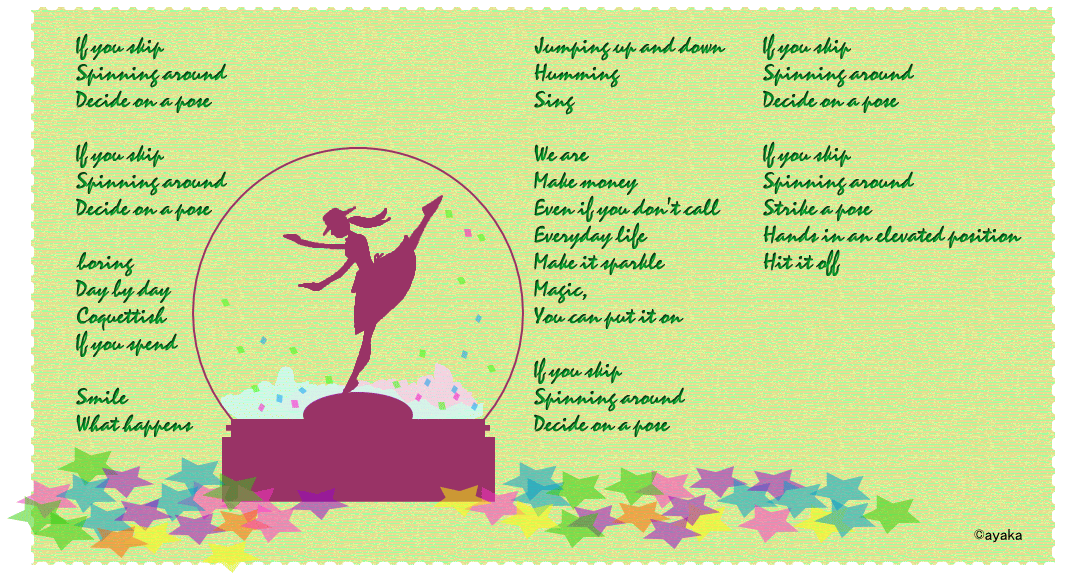 If you skip
Spinning around
Decide on a pose
If you skip
Spinning around
Decide on a pose
boring
Day by day
Coquettish
If you spend
Smile
What happens
Jumping up and down
Humming
Sing
We are
Make money
Even if you don't call
Everyday life
Make it sparkle
Magic,
You can put it on
If you skip
Spinning around
Decide on a pose
If you skip
Spinning around
Decide on a pose
If you skip
Spinning around
Strike a pose
Hands in an elevated position
Hit it off
©ayaka